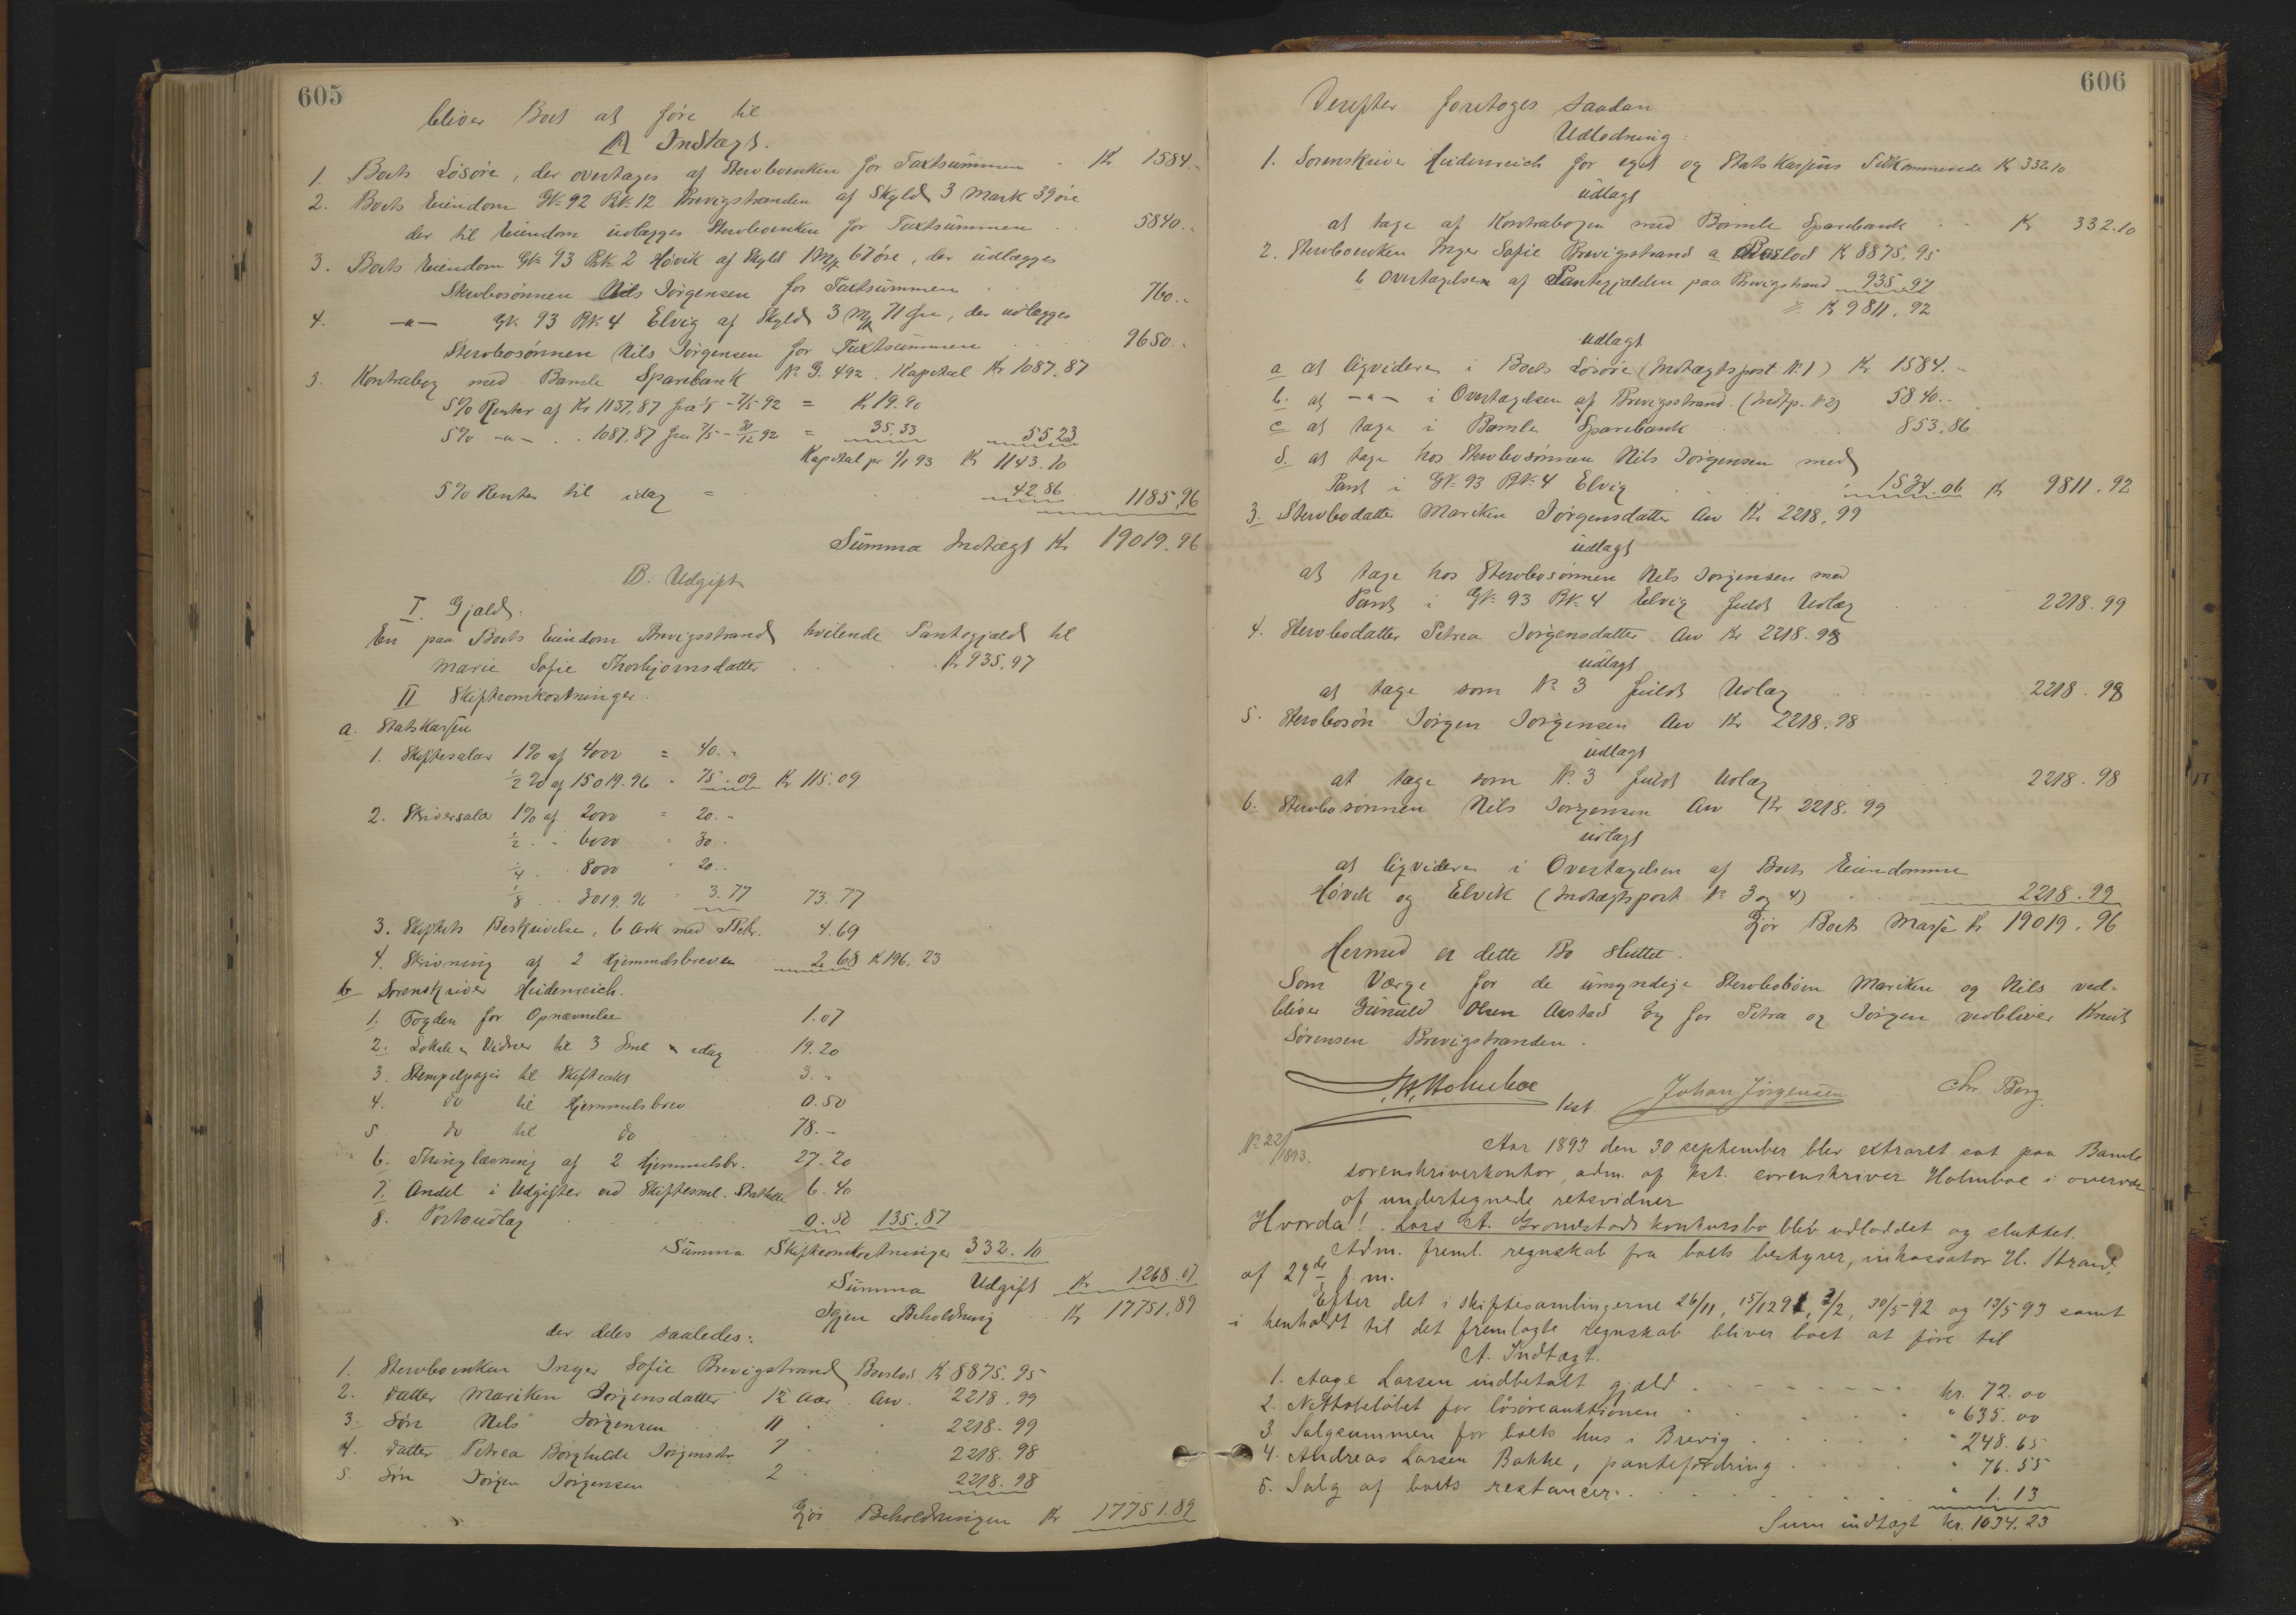 605
bliver Boet at føre til
A Indtægt.
1. Boets Løsøre, der overtages af Stervboenken for Taxtsummen . Kr 1584.-
2. Boets Eiendom GN. 92 BN. 12 Brevigstranden af Skyld 3 Mark 39 øre
der til Eiendom udlægges Stervboenken for Taxtsummen . . 5840..
3. Boets Eiendom GN. 93 BN. 2 Høvik af Skyld 1 Mk 67 øre, der udlægges
Stervbosønnen Nils Jørgensen for Taxtsummen . . . 760..
4. -"- GN. 93 BN. 4 Elvig af Skyld 3 Mk 71 Øre, der udlægges
Stervbosønnen Nils Jørgensen for Taxtsummen . . . 9650..
5. Kontrabog med Bamle Sparebank No G. 492. Kapital Kr 1087.87
5% Renter af Kr 1137.87 fra 1/1 - 7/5 92 = Kr 19.90
5% -"- . . 1087.87 fra 7/5 - 30/12 92 = 35.33 55.23
Kapital pr 1/1 93 Kr 1143.10
5% Renter til idag = . . . 42.86 1185.96
Summa Indtægt Kr 19019.96
B. Udgift
I. Gjæld.
En paa Boets Eiendom Brevigsstrand hvilende Pantegjæld til
Marie Sofie Thorbjørnsdatter . . . Kr 935.97
II Skifteomkostninger.
a. Statskassen
1. Skiftesalær 1% af 4000 = 40..
1/2 % af 15019.96 " 75.09 Kr 115.09
2. Skriversalær 1% af 2000 = 20..
1/2 . . 6000 " 30..
1/4 . . 8000 " 20..
1/8 . . 3019.96 " 3.77 73.77
3. Skiftets Beskrivelse, 6 Ark med Beh. 4.69
4. Skrivning af 2 Hjemmelsbreve 2.68 Kr 196.23
b Sorenskriver Heidenreich.
1. Fogden for Opnævnelse 1.07
2. Lokale & Vidner til 3 Sml & idag 19.20
3. Stempelpapir til Skifteakt 3.-
4. do til Hjemmelsbrev 0.50
5. do til do 78.-
6. Thinglæsning af 2 Hjemmelsbr. 27.20
7. Andel i Udgifter ved Skiftesml. Stathelle 6.40
8. Portoudlæg . . . 0.50 135.87
Summa Skifteomkostninger 332.10
Summa Udgift Kr 1268.07
Igjen Beholdning Kr 17751.89
der deles saaledes:
1. Stervboenken Inger Sofie Brevigstrand Boeslod Kr 8875.95
2. Datter Mariken Jørgensdatter 12 Aar Arv. 2218.99
3. Søn Nils Jørgensen 11 " " 2218.99
4. Datter Petrea Borghilde Jørgensdr 7 " " 2218.98
5. Søn Jørgen Jørgensen 2 " 2218.98
Gjør Beholdningen Kr 17751.89
606
Derefter foretoges saadan
Udlodning:
1. Sorenskriver Heidenreich for eget og Statskassens Tilkommende Kr 332.10
udlagt
at tage af Kontrabogen med Bamle Sparebank . . Kr 332.10
2. Stervboenken Inger Sofie Brevigstrand a Boeslod Kr 8875.95
b Overtagelsen af Pantegjælden paa Brevigstrand 935.97
Kr 9811.92
udlagt
a at liqvidere i Boets Løsøre (Indtægtspost N. 1) Kr 1584.-
b. at -"- i Overtagelsen af Brevigsstrand. (Indtp. N 2) 5840..
c at tage i Bamle Sparebank . . . 853.86
d. at tage hos Stervbosønnen Nils Jørgensen med
Pant i GN. 93 BN. 4 Elvig . . . 1534.06 Kr 9811.92
3. Stervbodatter Mariken Jørgensdatter Arv Kr 2218.99
udlagt
at tage hos Stervbosønnen Nils Jørgensen med
Pant i GN. 93 BN. 4 Elvig fuldt Udlæg . . . 2218.99
4. Stervbodatter Petrea Jørgensdatter Arv Kr 2218.98
udlagt
at tage som N. 3 fuldt Udlæg . . . 2218.98
5. Stervbosøn Jørgen Jørgensen Arv Kr 2218.98
udlagt
at tage som N. 3 fuldt Udlæg . . . 2218.98
6. Stervbosønnen Nils Jørgensen Arv Kr 2218.99
udlagt
at liqvidere i Overtagelsen af Boets Eiendomme
Høvik og Elvik (Indtægtspost N 3 og 4) . . . 2218.99
Gjør Boets Masse Kr 19019.96
Hermed er dette Bo sluttet.
Som Værge for de umyndige Stervbobørn Mariken og Nils ved-
bliver Gunuld Olsen Aastad og for Petra og Jørgen vedbliver Knut
Sørensen Brevigstranden.
Holmboe kst. Johan Jørgensen Chr. Berg.
No 22/1893.
Aar 1893 den 30 september blev extraret sat paa Bamle
sorenskriverkontor, adm. af kst. sorenskriver Holmboe i overvær
af undertegnede retsvidner
Hvorda! Lars A. Grønstads konkursbo blev udloddet og sluttet.
Adm. freml. regnskab fra boets bestyrer, inkassator H. Strand,
af 27de f. m.
Efter det i skiftesamlingerne 26/11, 15/12 91, 2/2, 30/5-92 og 13/5 93 samt
i henhold til det fremlagte regnskab bliver boet at føre til
A. Indtægt.
1. Aage Larsen indbetalt gjæld . . . kr. 72.00
2. Nettobeløbet for løsøreauktionen . . . " 635.00
3. Salgsummen for boets hus i Brevig . . . " 248.65
4. Andreas Larsen Bakke, pantefordring . . . " 76.55
5. Salg af boets restancer . . . " 1.13
Sum indtægt kr. 1034.23